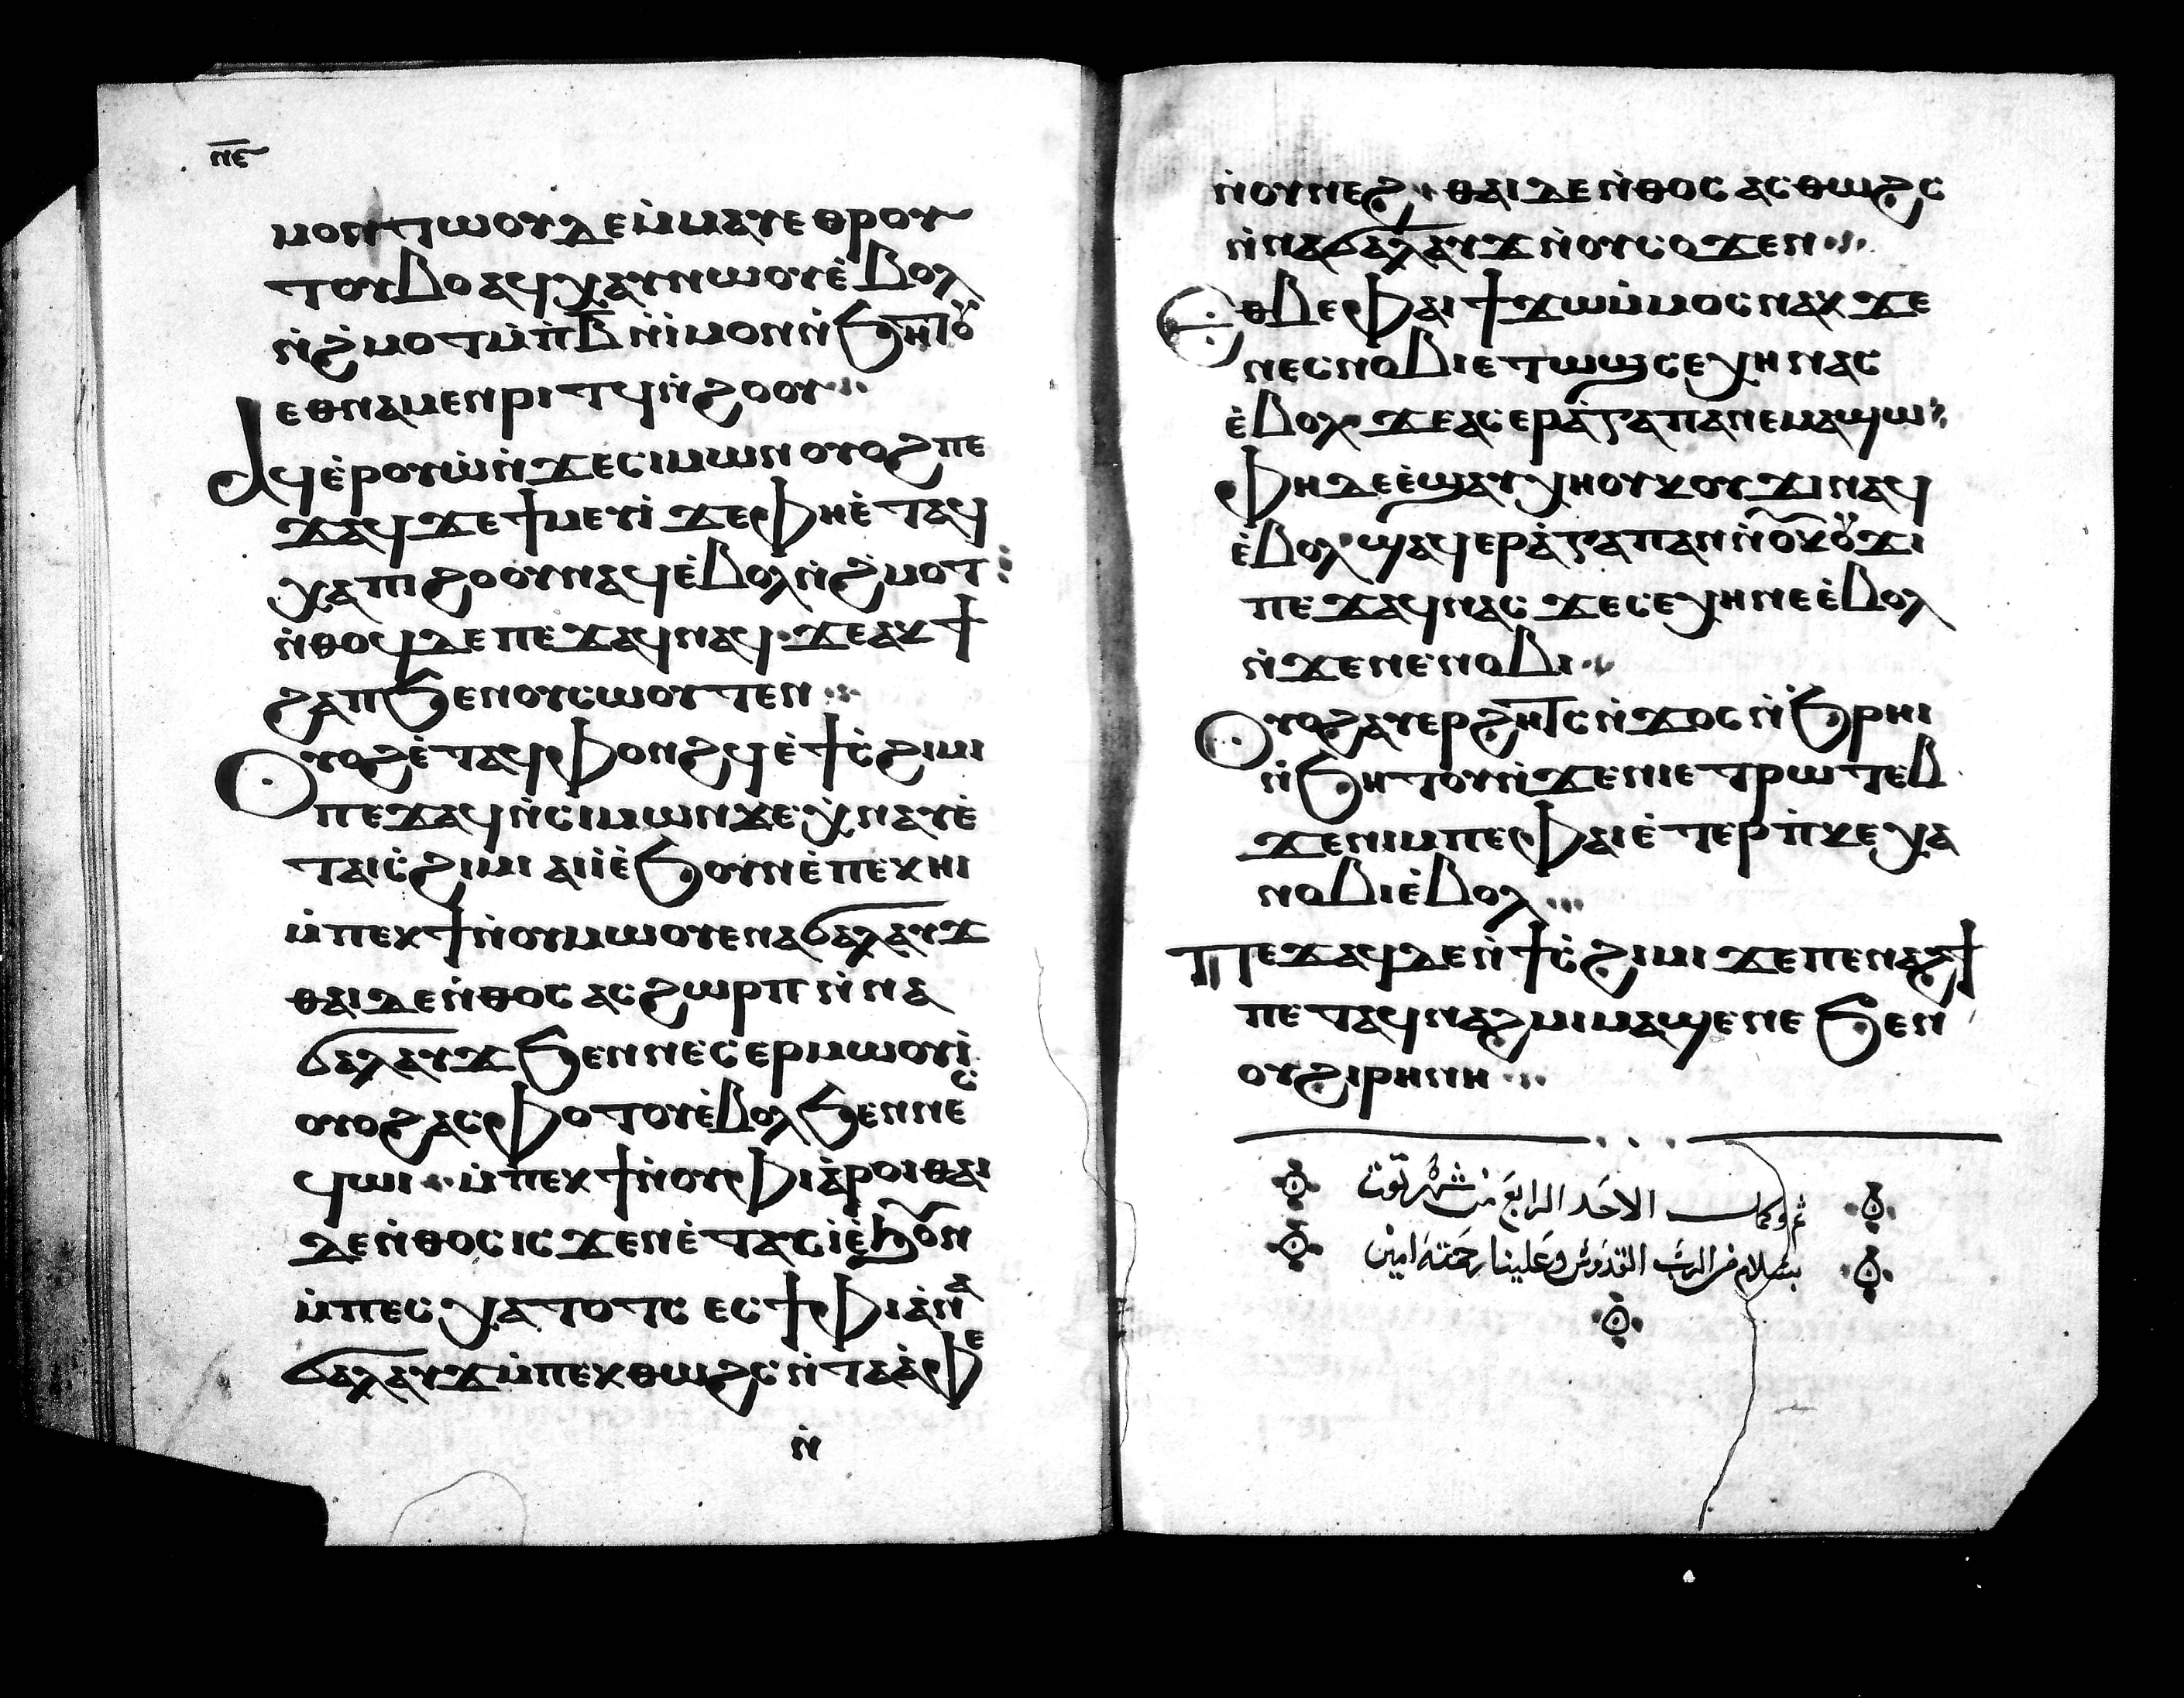 ⲛⲉ
ⲙⲟⲛⲧⲱⲟⲩⲇⲉⲙ̀ⲙⲁⲩⲉⲑⲣⲟⲩ
ⲧⲟⲩⲃⲟⲁϥⲭⲁⲩⲛⲱⲟⲩⲉ̀ⲃⲟⲗ
ⲛ̀ϩ̀ⲙⲟⲧⲙ̀ⲡⲃ̅ⲛⲓ̀ⲙⲟⲛⲛ̀ϧⲏⲧⲟⲩ
ⲉⲑⲛⲁⲙⲉⲛⲣⲓⲧϥⲛ̀ϩⲟⲟⲩ
ⲁϥⲉ̀ⲣⲟⲩⲱ̀ⲛ̀ϫⲉⲥⲓⲙⲱⲛⲟⲩⲟϩⲡⲉ
ϫⲁϥϫⲉϯⲙⲉⲩⲓ̀ϫⲉⲫⲏⲉ̀ⲧⲁϥ
ⲭⲁⲡⲓϩⲟⲟⲩⲛⲁϥⲉ̀ⲃⲟⲗⲛ̀ϩ̀ⲙⲟⲧ
ⲛ̀ⲑⲟϥⲇⲉⲡⲉϫⲁϥⲛⲁϥϫⲉⲁⲕϯ
ϩⲁⲡϧⲉⲛⲟⲩⲥⲱⲟⲩⲧⲉⲛ
ⲟⲩⲟϩⲉ̀ⲧⲁϥⲫⲟⲛϩϥⲉ̀ϯⲥ̀ϩⲓⲙⲓ
ⲡⲉϫⲁϥⲛ̀ⲥⲓⲙⲱⲛϫⲉⲭ̀ⲛⲁⲩⲉ̀
ⲧⲁⲓⲥ̀ϩⲓⲙⲓⲁⲓⲓ̀ⲉ̀ϧⲟⲩⲛⲉ̀ⲡⲉⲕⲏⲓ
ⲙ̀ⲡⲉⲕϯⲛ̀ⲟⲩⲙⲱⲟⲩⲉⲛⲁϭⲁⲗⲁⲩϫ
ⲑⲁⲓⲇⲉⲛ̀ⲑⲟⲥⲁⲥϩⲱⲣⲡⲛ̀ⲛⲁ
ϭⲁⲗⲁⲩϫϧⲉⲛⲛⲉⲥⲉⲣⲙⲱⲟⲩⲓ̀
ⲟⲩⲟϩⲁⲥⲫⲟⲧⲟⲩⲉ̀ⲃⲟⲗϧⲉⲛⲛⲉⲥ
ϥⲱⲓⲙ̀ⲡⲉⲕϯⲛ̀ⲟⲩⲫⲓⲁ̀ⲣⲟⲓⲑⲁⲓ
ⲇⲉⲛ̀ⲑⲟⲥⲓⲥϫⲉⲛⲉ̀ⲧⲁⲥⲓ̀ⲉ̀ϧⲟⲩⲛ
ⲙ̀ⲡⲉⲥⲭⲁⲧⲟⲧⲥⲉⲥϯⲫⲓⲁ̀ⲛⲁ
ϭⲁⲗⲁⲩϫⲙ̀ⲡⲉⲕⲑⲱϩⲥⲛ̀ⲧⲁⲁ̀ⲫⲉ
ⲛ̀
ⲛ̀ⲟⲩⲛⲉϩⲑⲁⲓⲇⲉⲛ̀ⲑⲟⲥⲁⲥⲑⲱϩⲥ
ⲛ̀ⲛⲁϭⲁⲗⲁⲩϫⲛ̀ⲟⲩⲥⲟϫⲉⲛ
ⲉⲑⲃⲉⲫⲁⲓϯϫⲱⲙ̀ⲙⲟⲥⲛⲁⲕϫⲉ
ⲛⲉⲥⲛⲟⲃⲓⲉⲧⲱϣⲥⲉⲭⲏⲛⲁⲥ
ⲉ̀ⲃⲟⲗϫⲉⲁⲥⲉⲣⲁ̀ⲅⲁⲡⲁⲛⲉⲙⲁϣⲱ
ⲫⲏⲇⲉⲉ̀ϣⲁⲩⲭⲏⲟⲩⲕⲟⲩϫⲓⲛⲁϥ
ⲉ̀ⲃⲟⲗϣⲁϥⲉⲣⲁ̀ⲅⲁⲡⲁⲛⲛ̀ⲟⲩⲕⲟⲩϫⲓ
ⲡⲉϫⲁϥⲛⲁⲥϫⲉⲥⲉⲭⲏⲛⲉⲉ̀ⲃⲟⲗ
ⲛ̀ϫⲉⲛⲉⲛⲟⲃⲓ
ⲟⲩⲟϩⲁⲩⲉⲣϩⲏⲧⲥⲛ̀ϫⲟⲥⲛ̀ϧ̀ⲣⲏⲓ
ⲛ̀ϧⲏⲧⲟⲩⲛ̀ϫⲉⲛⲓⲉⲧⲣⲱⲧⲉⲃ
ϫⲉⲛⲓⲙⲡⲉⲫⲁⲓⲉ̀ⲧⲉⲣⲡ̀ⲕⲉⲭⲁ
ⲛⲟⲃⲓⲉ̀ⲃⲟⲗ
ⲡⲉϫⲁϥⲇⲉⲛ̀ϯⲥ̀ϩⲓⲙⲓϫⲉⲡⲉⲛⲁϩϯ
ⲡⲉⲧⲁϥⲛⲁϩⲙⲓⲙⲁϣⲉⲛⲉϧⲉⲛ
ⲟⲩϩⲓⲣⲏⲛⲏ
تم وكمل الاحد الرابع من شهر توت
بسلام من الرب القدوس وعلينا رحمته امين